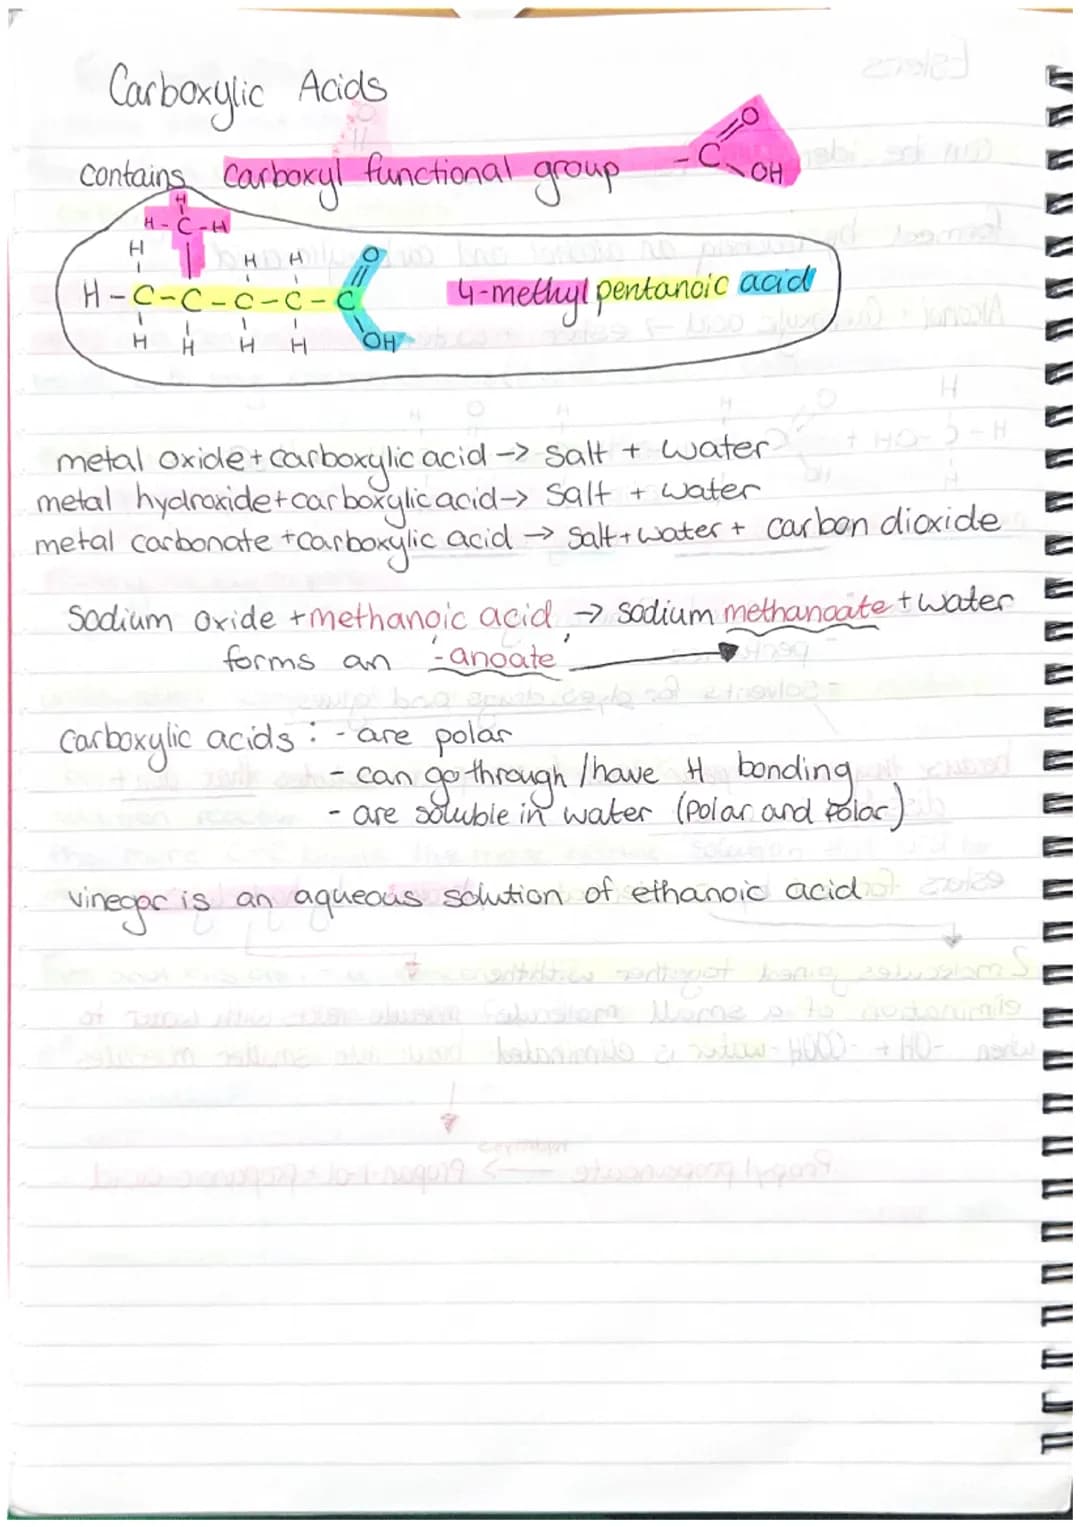 Carboxylic Acids
contains carboxyl functional group -C=O OH
H
H-C-H
H H H O
H-C-C-C-C-C 4-methyl pentanoic acid
H H H H OH
metal oxide + carboxylic acid -> salt + water
metal hydroxide + carboxylic acid -> salt + water
metal carbonate + carboxylic acid -> salt + water + carbon dioxide
sodium oxide + methanoic acid -> sodium methanoate + water
forms an '-anoate'
carboxylic acids : - are polar
- can go through / have H bonding
- are soluble in water (polar and polar)
vinegar is an aqueous solution of ethanoic acid